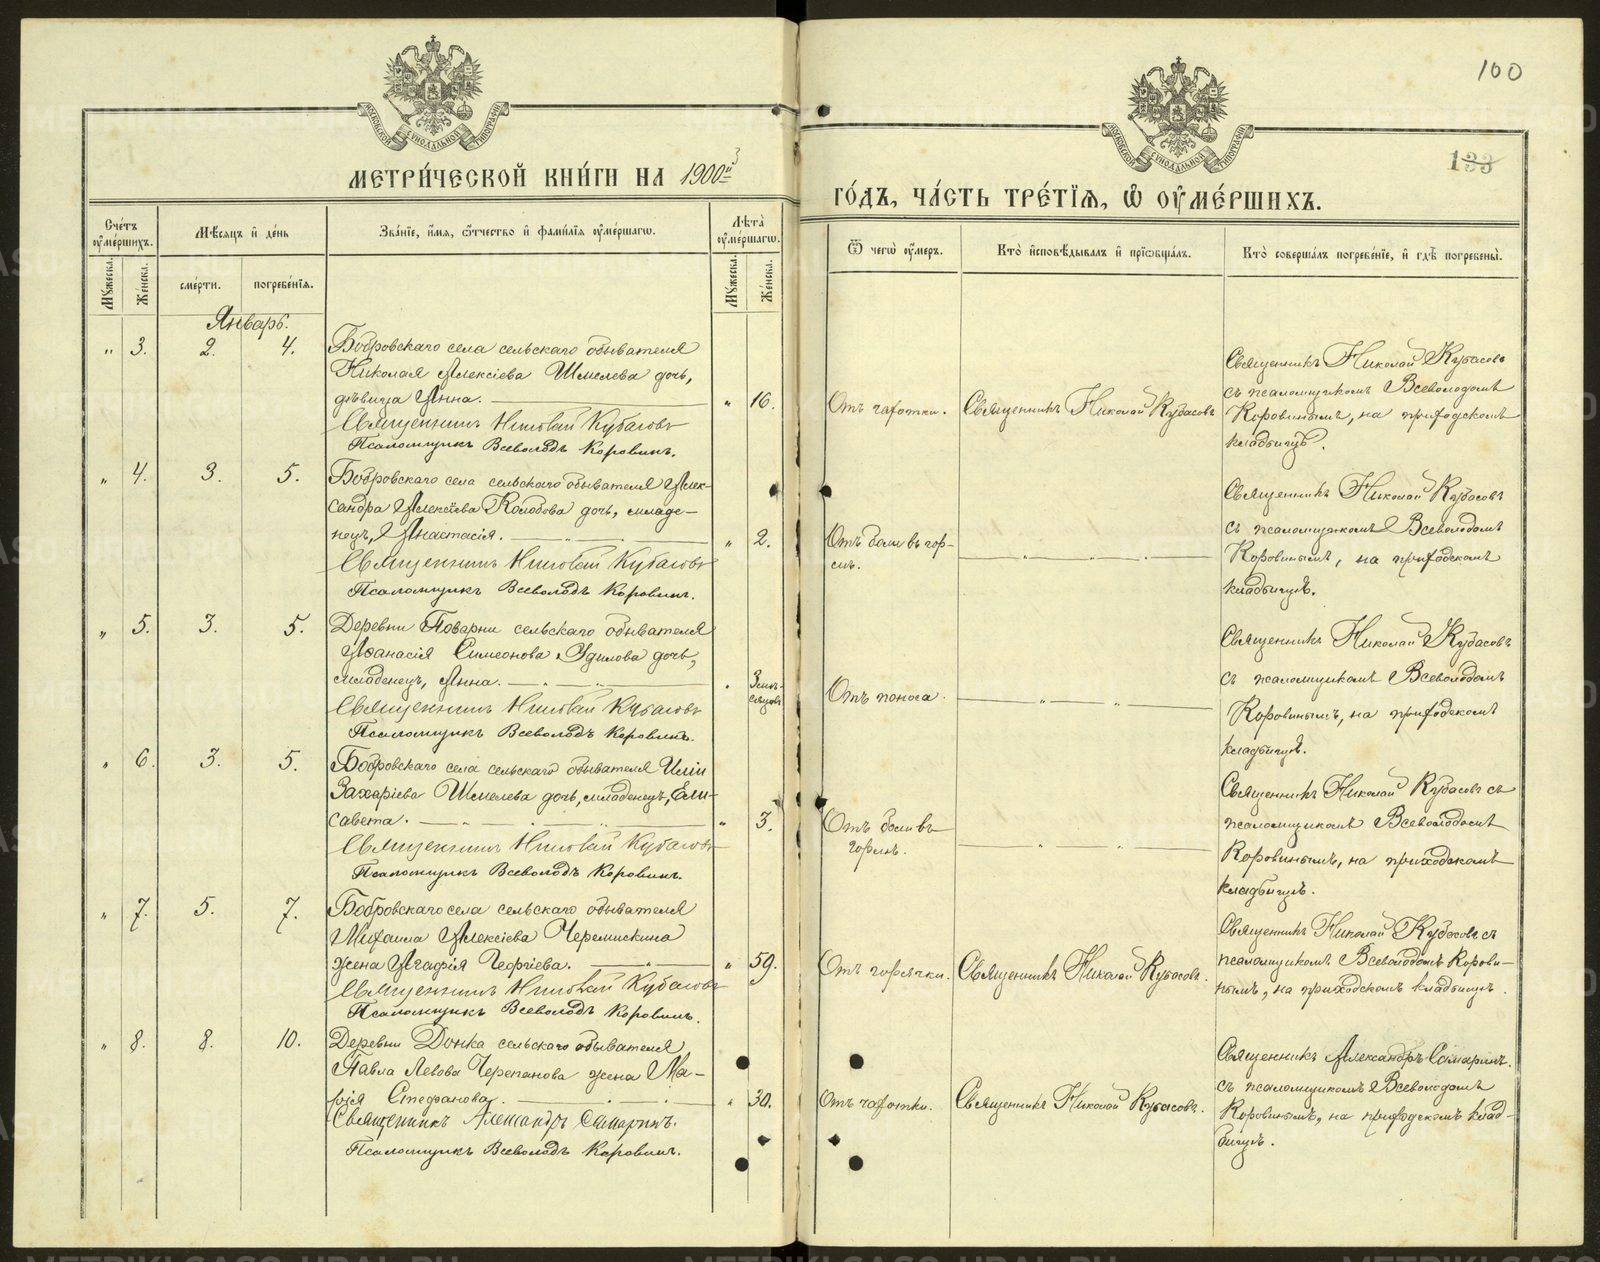 100
133
МОСКОВСКОЙ СѴНОДАЛЬНОЙ ТИПОГРАФІИ
МОСКОВСКОЙ СѴНОДАЛЬНОЙ ТИПОГРАФІИ
МЕТРИ́ЧЕСКОЙ КНИ́ГИ НА 1900 3й
ГО́ДЪ, ЧА́СТЬ ТРЕ́ТІѦ, Ѡ ОУМЕ́РШИХЪ.
Сче́тъ оумершихъ.
Мѣсяцъ и де́нь
Зва́ніе, и́мя, ѻ́тчество и фами́лія оуме́ршагѡ.
Лѣта̀ оуме́ршагѡ.
Ѿ чегѡ̀ оу́меръ.
Кто̀ исповѣ́дывалъ и пріѡбща́лъ.
Кто̀ соверша́лъ погребе́ніе, и гдѣ̀ погребены̀.
Мужеска.
Же́нска.
сме́рти.
погребе́нія.
Мужеска.
Же́нска.
Январь.
„ 3. 2. 4. Бобровскаго села сельскаго обывателя
Николая Алексіева Шмелева дочь,
дѣвица Анна. „ 16.
Священникъ Николай Кубасовъ
Псаломщикъ Всеволодъ Коровинъ.
Отъ чахотки. Священникъ Николай Кубасовъ
Священникъ Николай Кубасовъ
съ псаломщикомъ Всеволодомъ
Коровинымъ, на приходскомъ
кладбищѣ.
„ 4. 3. 5. Бобровскаго села сельскаго обывателя Алек-
сандра Алексіева Колобова дочь, младе-
нецъ, Анастасія. „ 2.
Священникъ Николай Кубасовъ
Псаломщикъ Всеволодъ Коровинъ.
Отъ боли въ гор-
лѣ.
Священникъ Николай Кубасовъ
съ псаломщикомъ Всеволодомъ
Коровинымъ, на приходскомъ
кладбищѣ.
„ 5. 3. 5. Деревни Поварни сельскаго обывателя
Аѳанасія Симеонова дочь,
младенецъ, Анна. „ 3 мѣ-
сяцовъ
Священникъ Николай Кубасовъ
Псаломщикъ Всеволодъ Коровинъ.
Отъ поноса.
Священникъ Николай Кубасовъ
съ псаломщикомъ Всеволодомъ
Коровинымъ, на приходскомъ
кладбищѣ.
„ 6. 3. 5. Бобровскаго села сельскаго обывателя Иліи
Захаріева Шмелева дочь, младенецъ, Ели-
савета. „ 3.
Священникъ Николай Кубасовъ
Псаломщикъ Всеволодъ Коровинъ.
Отъ боли въ
горлѣ.
Священникъ Николай Кубасовъ съ
псаломщикомъ Всеволодомъ
Коровинымъ, на приходскомъ
кладбищѣ.
„ 7. 5. 7. Бобровскаго села сельскаго обывателя
Михаила Алексіева Черемискина
жена Агафія Георгіева. „ 59.
Священникъ Николай Кубасовъ
Псаломщикъ Всеволодъ Коровинъ.
Отъ горячки. Священникъ Николай Кубасовъ.
Священникъ Николай Кубасовъ съ
псаломщикомъ Всеволодомъ Корови-
нымъ, на приходскомъ кладбищѣ.
„ 8. 8. 10. Деревни Донка сельскаго обывателя
Павла Левова Черепанова жена Ма-
рія Стефанова. „ 30.
Священникъ Александръ Самаринъ.
Псаломщикъ Всеволодъ Коровинъ.
Отъ чахотки. Священникъ Николай Кубасовъ.
Священникъ Александръ Самаринъ
съ псаломщикомъ Всеволодомъ
Коровинымъ, на приходскомъ клад-
бищѣ.